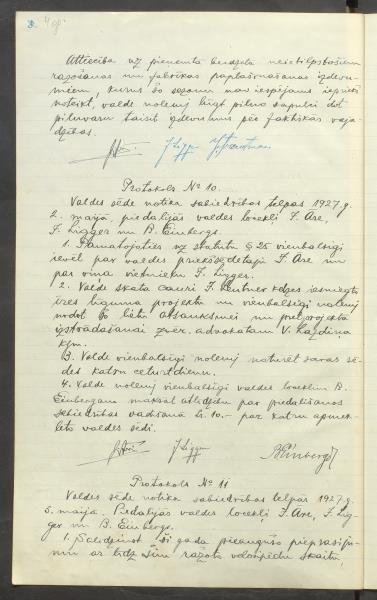 Attiecībā uz pieņemtā budžeta neietilpstošiem
ražošanas un fabrikas paplašināšanas izdevu-
miem, kurus šo sezonu nav iespējams iepriekš
noteikt, valde nolemj lūgt pilnu sapulci dot
pilnvaru taisīt izdevumus pēc faktiskās vaja-
dzības.
Protokols № 10.
Valdes sēde notika sabiedrības telpās 1927. g.
2. maijā, piedalijās valdes locekļi J. Āre,
J. Ligger un B. Einbergs.
1. Pamatojoties uz statūtu § 25 vienbalsīgi
ievēl par valdes priekšsēdētāju J. Āre un
par viņa vietnieku J. Ligger.
2. Valde skata cauri J. kdzes iesniegto
īres līguma projektu un vienbalsīgi nolemj
nodot šo lietu atsauksmei un pretprojekta
izstrādāšanai zvēr. advokātam V. Lazdiņa
kgm.
3. Valde vienbalsīgi nolemj noturēt savas sē-
des katru ceturtdienu.
4. Valde nolemj vienbalsīgi valdes loceklim B.
Einbergam maksāt atlīdzību par piedalīšanos
sabiedrības vadīšanā Ls. 10.- par katru apmek-
lēto valdes sēdi.
J. Ligger BEinbergs
Protokols № 11
Valdes sēde notika sabiedrības telpās 1927. g.
5. maijā. Piedalijās valdes locekļi J. Āre, J. Lig-
ger un B. Einbergs.
1. Salīdzinot šī gada pieaugušo pieprasīju-
mu ar līdz šim ražoto velosipēdu skaitu,